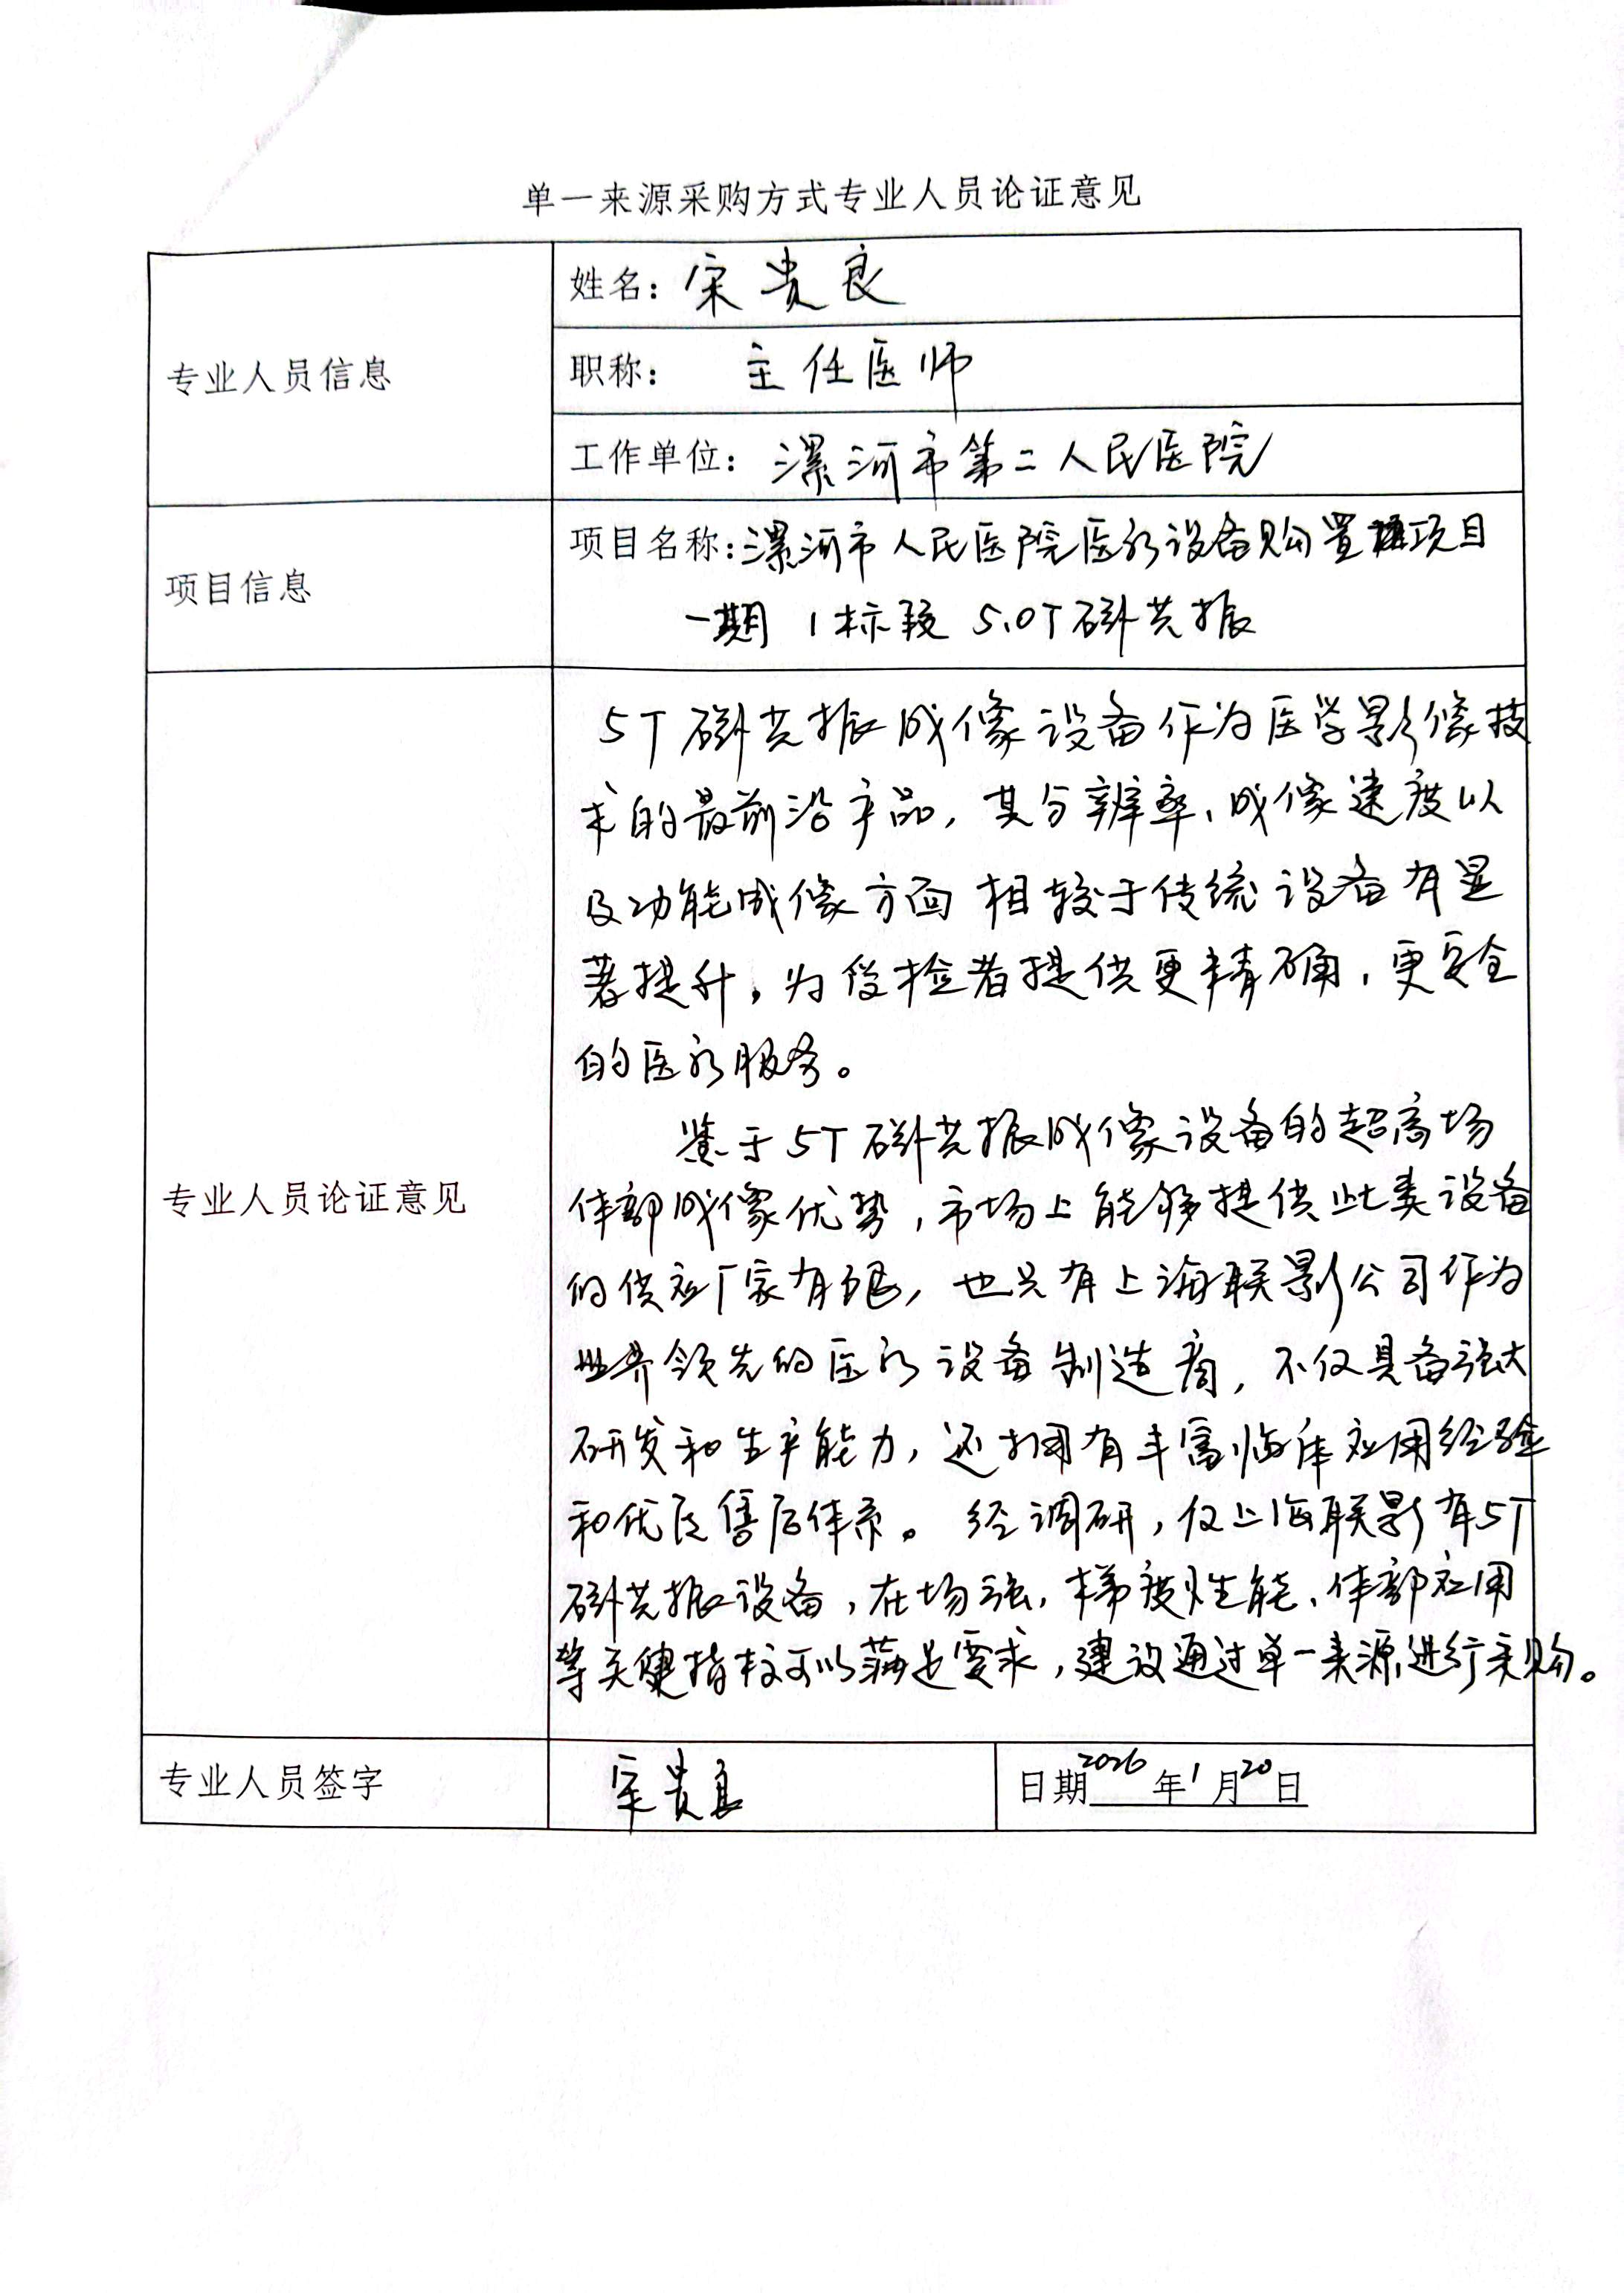 单一来源采购方式专业人员论证意见
专业人员信息
姓名：宋贵良
职称：主任医师
工作单位：漯河市第二人民医院
项目信息
项目名称：漯河市人民医院医疗设备购置项目
一期 1标段 5.0T磁共振
专业人员论证意见
5T磁共振成像设备作为医学影像技
术的最前沿产品，其分辨率、成像速度以
及功能成像方面相较于传统设备有显
著提升，为受检者提供更精确、更安全
的医疗服务。
鉴于5T磁共振成像设备的超高场
体部成像优势，市场上能够提供此类设备
的供应厂家有限，也只有上海联影公司作为
业界领先的医疗设备制造商，不仅具备强大
研发和生产能力，还拥有丰富临床应用经验
和优良售后体系。经调研，仅上海联影有5T
磁共振设备，在场强、梯度性能、体部应用
等关键指标可以满足要求，建议通过单一来源进行采购。
专业人员签字
宋贵良
日期2026年1月20日